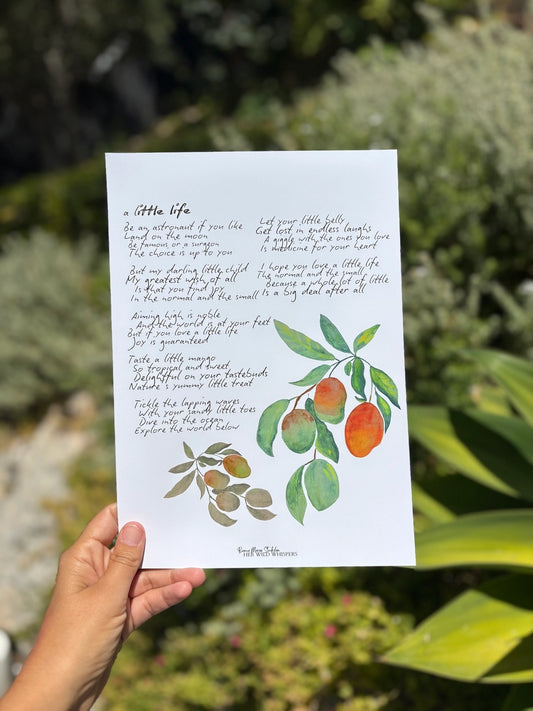 a little life
Be an astronaut if you like
Land on the moon
Be famous or a surgeon
The choice is up to you
But my darling little child
My greatest wish of all
Is that you find joy
In the normal and the small
Aiming high is noble
And the world is at your feet
But if you love a little life
Joy is guaranteed
Taste a little mango
So tropical and sweet
Delightful on your tastebuds
Nature's yummy little treat
Tickle the lapping waves
With your sandy little toes
Dive into the ocean
Explore the world below
Let your little belly
Get lost in endless laughs
A giggle with the ones you love
Is medicine for your heart
I hope you love a little life
The normal and the small
Because a whole lot of little
Is a big deal after all
HER WILD WHISPERS